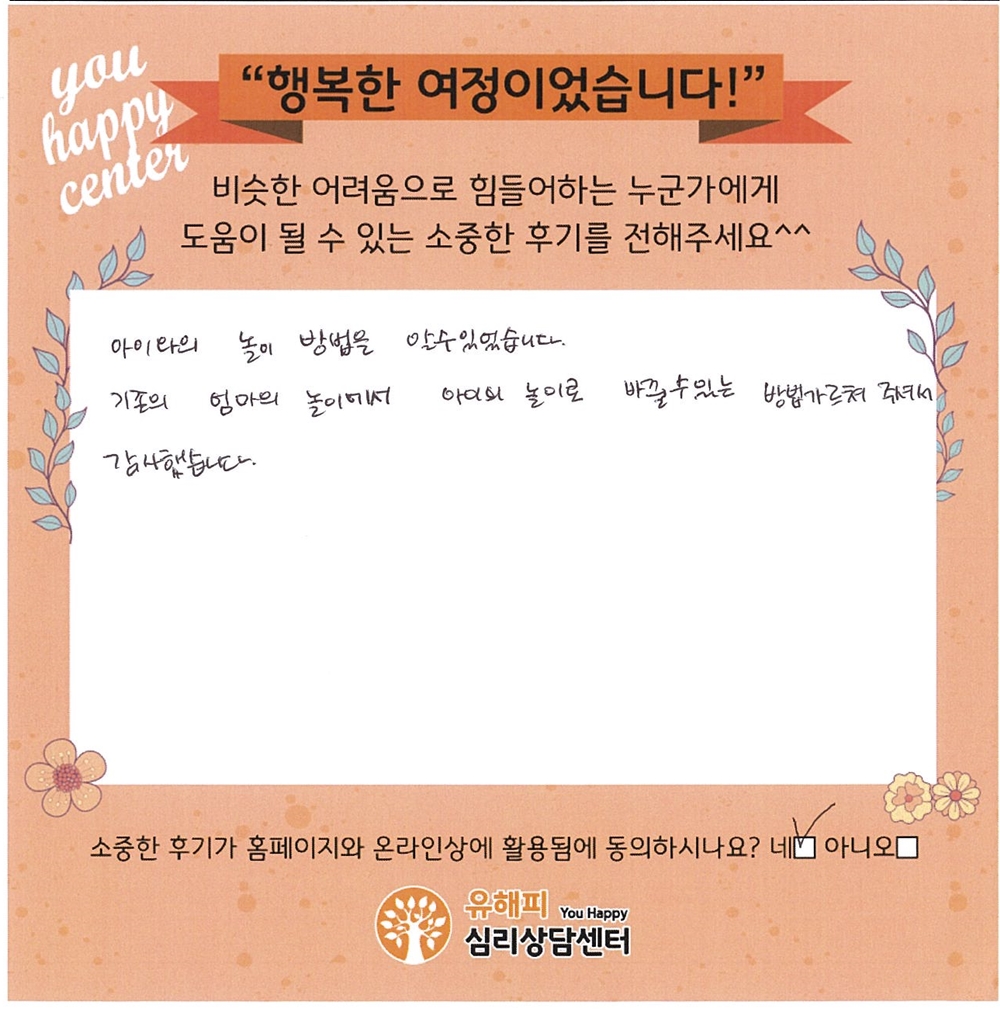 you
happy
center
“행복한 여정이었습니다!”
비슷한 어려움으로 힘들어하는 누군가에게
도움이 될 수 있는 소중한 후기를 전해주세요^^
아이와의 놀이 방법을 알수있었습니다.
기존의 엄마의 놀이에서 아이의 놀이로 바꿀수있는 방법가르쳐 주셔서
감사했습니다.
소중한 후기가 홈페이지와 온라인상에 활용됨에 동의하시나요? 네 아니오
유해피 You Happy
심리상담센터